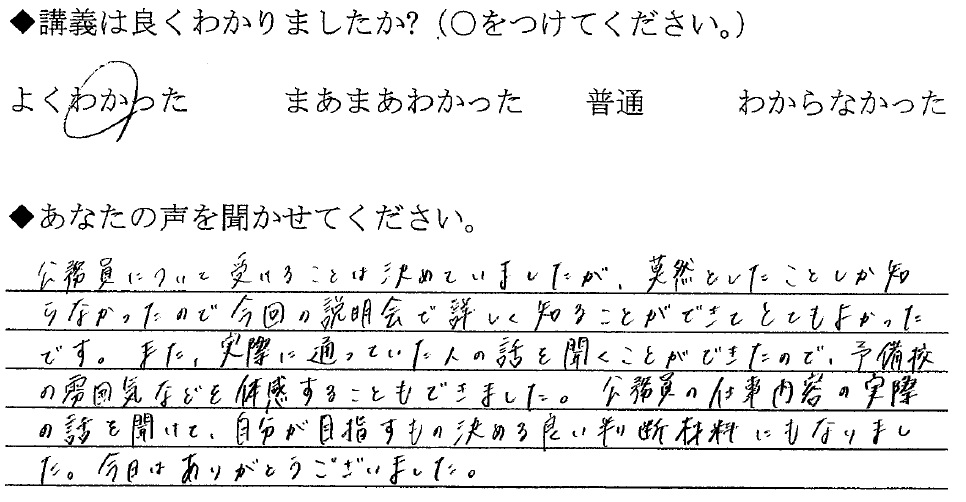 ◆講義は良くわかりましたか?（○をつけてください。）
よくわかった　まあまあわかった　普通　わからなかった
◆あなたの声を聞かせてください。
公務員について受けることは決めていましたが、莫然としたことしか知
らなかったので今回の説明会で詳しく知ることができてとてもよかった
です。また、実際に通っていた人の話を聞くことができたので、予備校
の雰囲気などを体感することもできました。公務員の仕事内容の実際
の話を聞けて、自分が目指すもの決める良い判断材料にもなりまし
た。今日はありがとうございました。